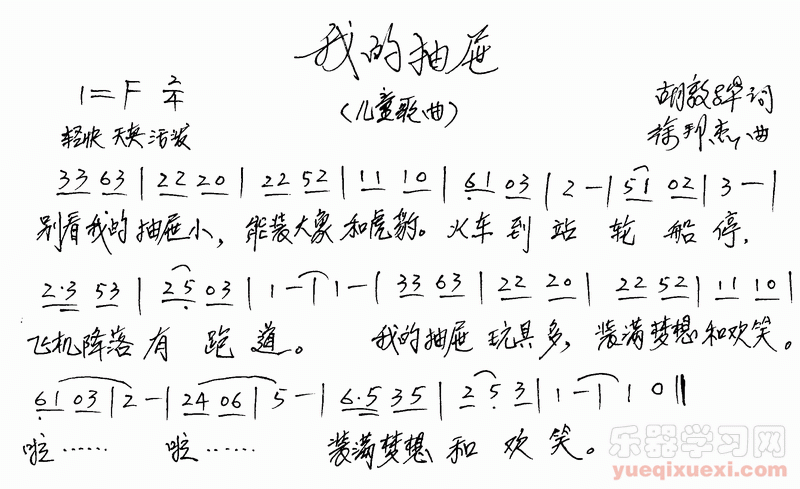 我的抽屉
(儿童歌曲)
1=F 2/4
胡敦骅词
轻快 天真 活泼
徐邦杰曲
33 63 | 22 20 | 22 52 | 11 10 | 61 03 | 2 - | 51 02 | 3 - |
别看我的抽屉小，能装大象和虎豹。火车到站轮船停，
2·3 53 | 25 03 | 1 - | 1 - | 33 63 | 22 20 | 22 52 | 11 10 |
飞机降落有跑道。 我的抽屉玩具多，装满梦想和欢笑。
61 03 | 2 - | 24 06 | 5 - | 6·5 35 | 2 5 3 | 1 - | 1 0 ‖
啦…… 啦…… 装满梦想和欢笑。
乐器学习网
yueqixuexi.com